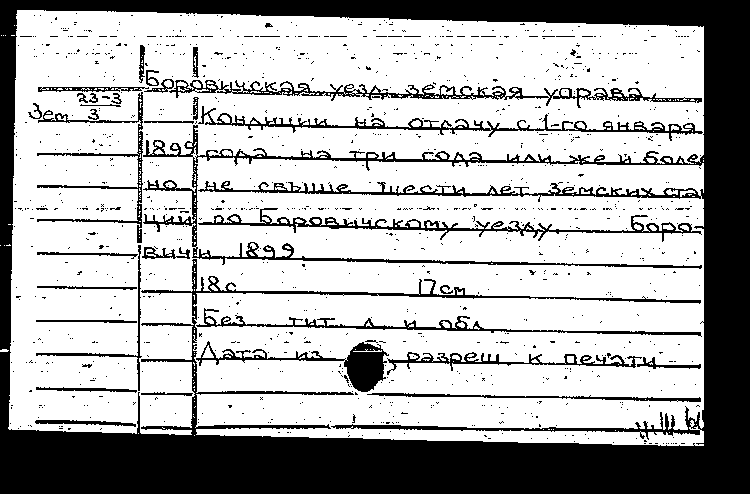 Боровичская уезд. земская управа.
23-3
Зем 3
Кондиции на отдачу с 1-го января
1899 года на три года или же и более
но не свыше шести лет, земских стан
ций по Боровичскому уезду. Боро-
вичи, 1899.
18с. 17см.
Без тит. л. и обл.
Дата из разреш. к печати